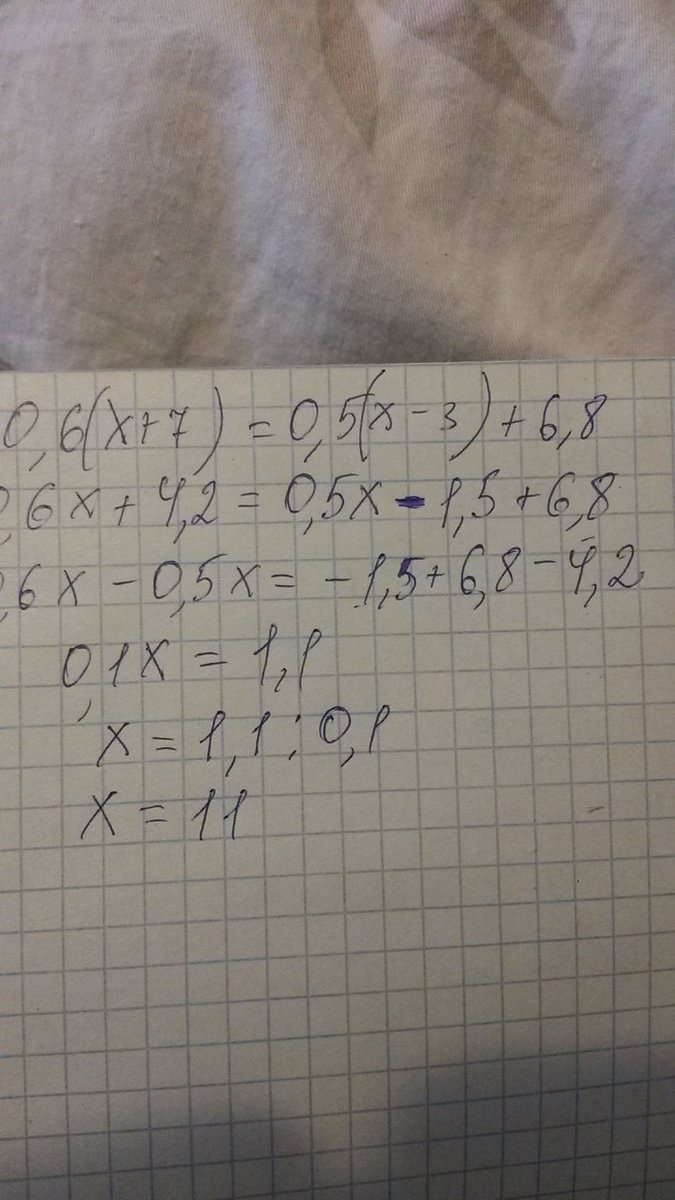 0,6(x+7) = 0,5(x-3)+6,8
0,6x+4,2 = 0,5x-1,5+6,8
0,6x-0,5x = -1,5+6,8-4,2
0,1x = 1,1
x = 1,1:0,1
x = 11